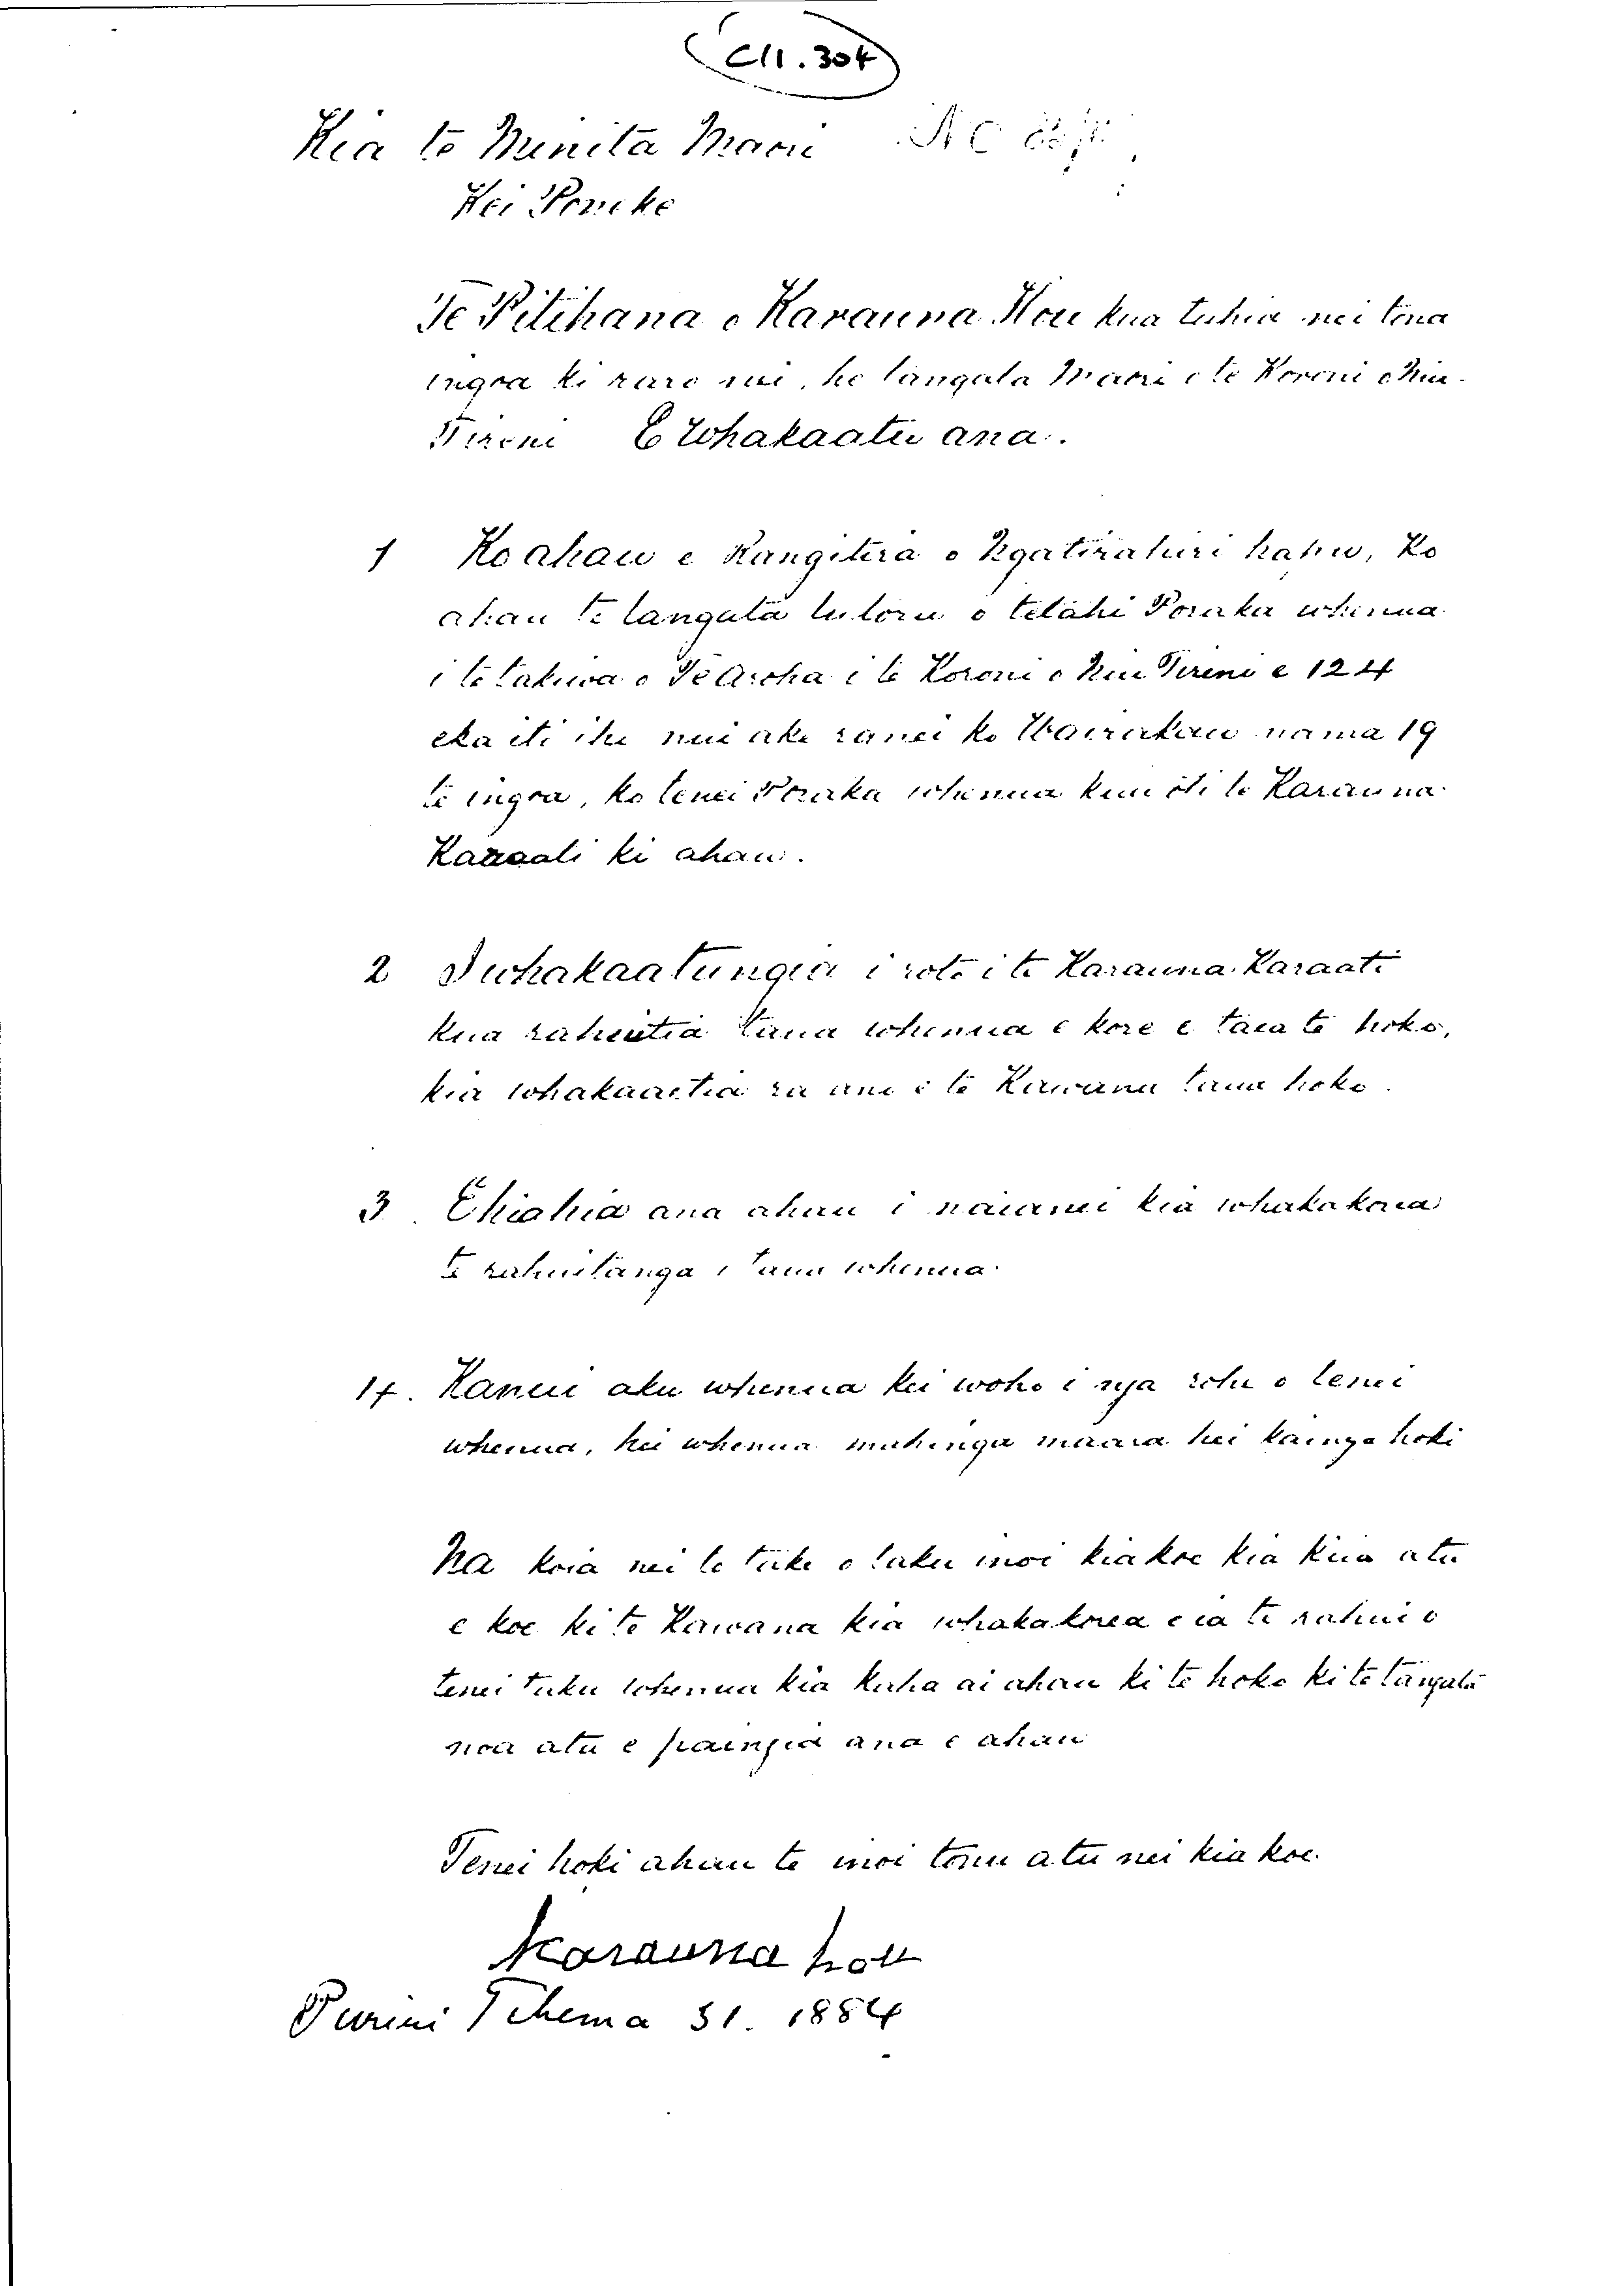 C11.304
Kia te Minita Maori
Kei Poneke
Te Pitihana o Karauna Hou kua tuhia nei tona
ingoa ki raro nei, he tangata Maori o te Koroni o Niu
Tireni E Whakaatu ana.
1 Ko ahau e Rangitira o Ngatiraturi hapu, Ko
ahau te tangata tuturu o tetahi Poraka whenua
i te takiwa o Te Aroha i te Koroni o Niu Tireni e 124
eka iti iho nui ake ranei ko Wairakau nama 19
te ingoa, ko tenei Poraka whenua kua oti te Karauna
Karaati ki ahau.
2 I whakaatungia i roto i te Karauna Karaati
kua rahuitia taua whenua e kore e taea te hoko,
kia whakaaetia ra ano e te Kawana taua hoko.
3. E hiahia ana ahau i naianei kia whakakorea
te rahuitanga i taua whenua.
4. Kanui aku whenua kei waho i nga rohe o tenei
whenua, hei whenua mahinga maara hei kainga hoki
Na koia nei te take o taku inoi kia koe kia kiia atu
e koe ki te Kawana kia whakakorea e ia te rahui o
tenei taku whenua kia kaha ai ahau ki te hoko ki te tangata
noa atu e paingia ana e ahau
Tenei hoki ahau te inoi tonu atu nei kia koe.
Karauna hou
Puriri Tihema 31. 1884